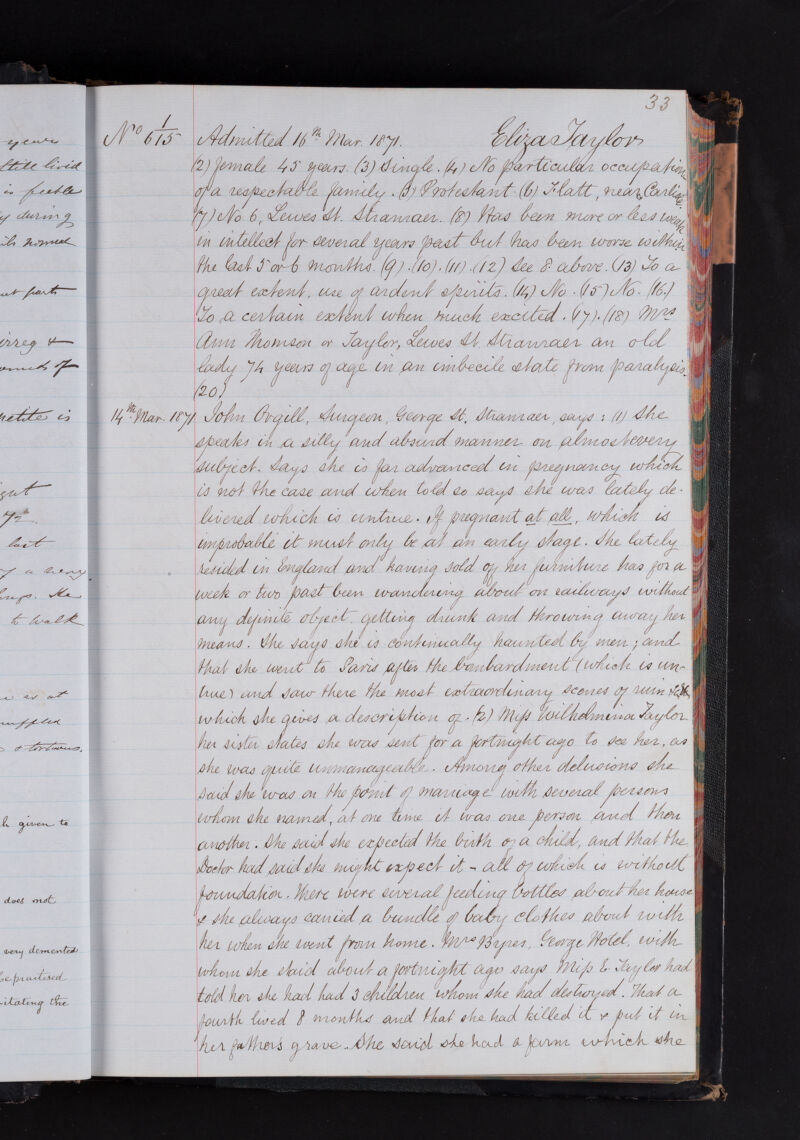 33
No 1/615 Admitted 16th Mar. 1871. Eliza Taylor
(2) female 45 years. (3) Single. (4) No particular occupation
of a respectable family. (5) Protestant. (6) Flatt, near Carlisle.
(7) No 6, Lewes St. Stranraer. (8) Has been more or less weak
in intellect for several years past but has been worse within
the last 5 or 6 months. (9). (10). (11). (12) See 8 above. (13) To a
great extent, use of ardent spirits. (14) No. (15) No. (16.)
To a certain extent when much excited. (17). (18) Mrs
Ann Thomson or Taylor, Lewes St. Stranraer an old
lady 74 years of age in an imbecile state from paralysis.
(20.)
14th Mar. 1871 John Orgill, Surgeon, George St. Stranraer, says: (1) She
speaks in a silly and absurd manner on almost every
subject. Says she is far advanced in pregnancy which
is not the case and when told so says she was lately de-
livered which is untrue. If pregnant at all, which is
improbable it must only be at an early stage. She lately
resided in England and having sold off her furniture has for a
week or two past been wandering about on railways without
any definite object, getting drunk and throwing away her
means. She says she is continually haunted by men; and
that she went to Paris after the bombardment (which is un-
true) and saw there the most extraordinary scenes of ruin &c
which she gives a description of. (2) Miss Wilhelmina Taylor
her sister states she was sent for a fortnight ago to see her, as
she was quite unmanageable. Among other delusions she
said she was on the point of marriage with several persons
whom she named, at one time it was one person and then
another. She said she expected the birth of a child, and that the
Doctor had said she might expect it - all of which is without
foundation. There were several feeding bottles about her house
& she always carried a bundle of baby clothes about with
her when she went from home. Mrs Byers, George Hotel, with
whom she staid about a fortnight ago says Miss E. Taylor had
told her she had had 3 children whom she had destroyed. That a
fourth lived 8 months and that she had killed it & put it in
her father's grave. She said she had a farm which she
years
livid
is feeble
during
parts
irreg &
of
is
last
a
He
to walk
at
tortuous.
given to
does not
very demented
be practised
the